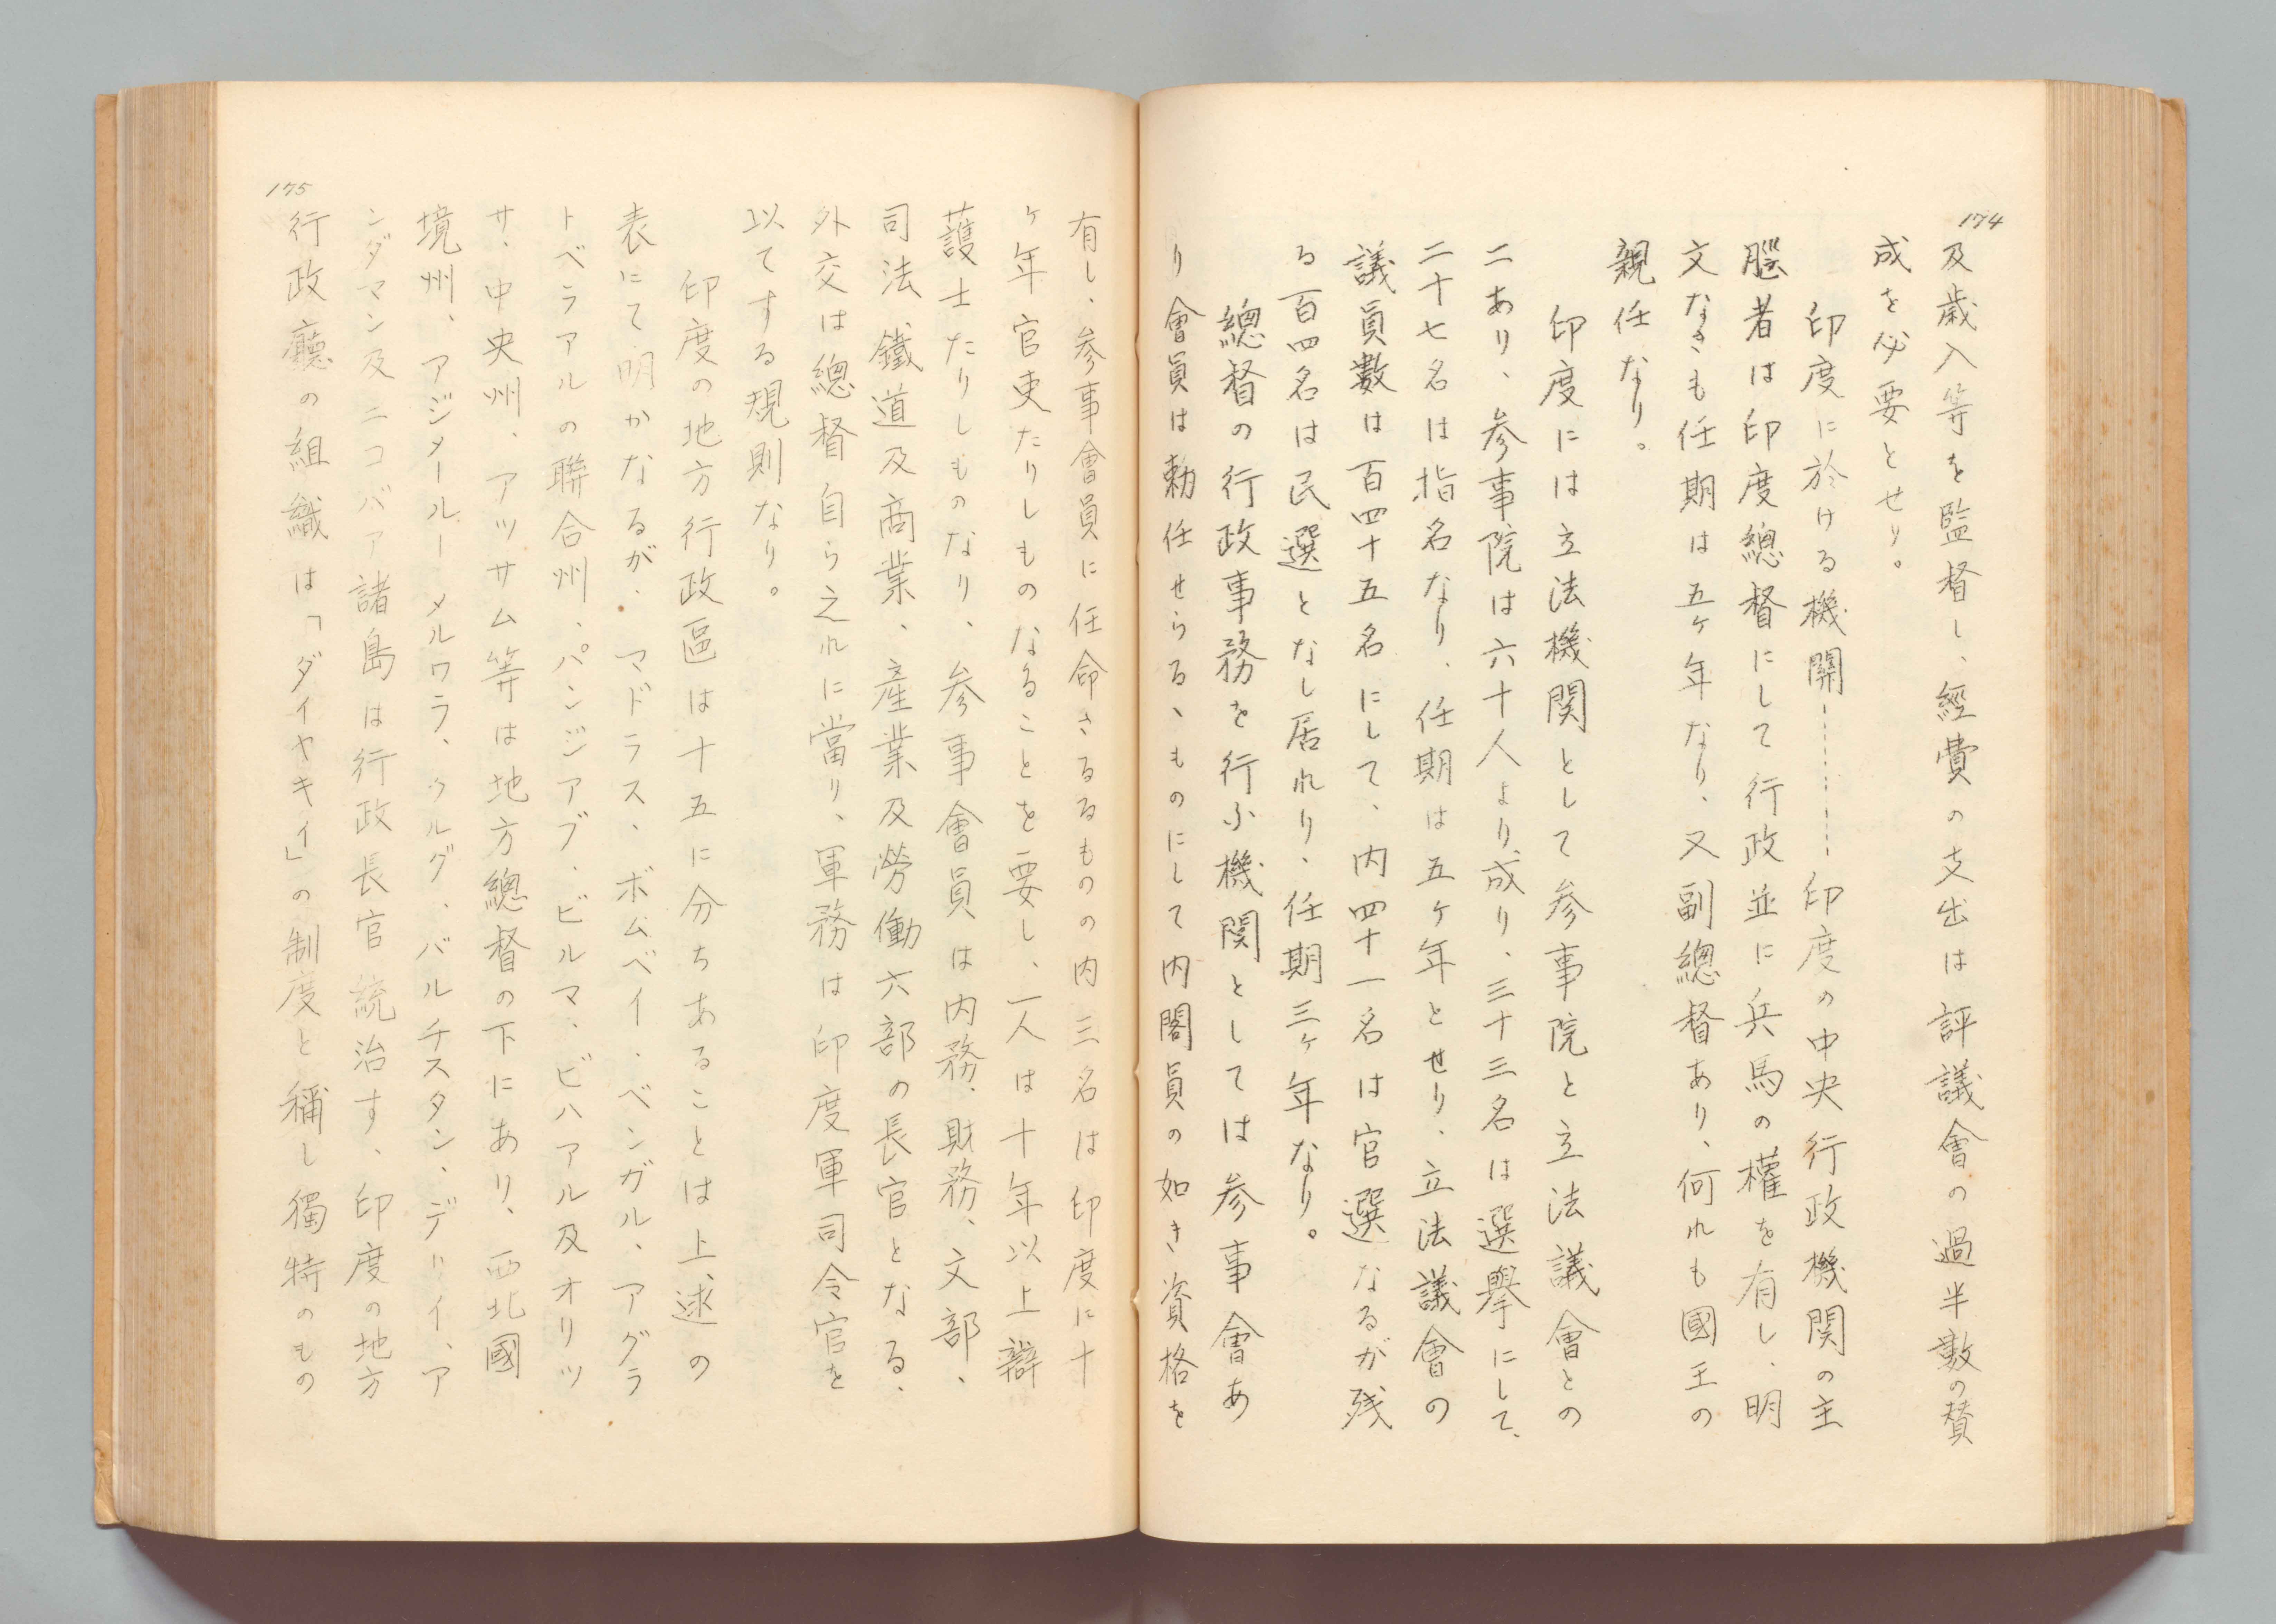 174
及歳入等を監督し、經費の支出は評議會の過半數の賛
成を必要とせり。
印度に於ける機関………印度の中央行政機関の主
腦者は印度總督にして行政並に兵馬の權を有し、明
文なきも任期は五ヶ年なり、又副總督あり、何れも國王の
親任なり。
印度には立法機関として参事院と立法議會との
二あり、参事院は六十人より成り、三十三名は選擧にして、
二十七名は指名なり、任期は五ヶ年とせり、立法議會の
議員數は百四十五名にして、内四十一名は官選なるが残
る百四名は民選となし居れり、任期三ヶ年なり。
總督の行政事務を行ふ機関としては参事會あ
り會員は勅任せらるゝものにして内閣員の如き資格を
有し、参事會員に任命さるるものの内三名は印度に十
ヶ年官吏たりしものなることを要し、一人は十年以上辯
護士たりしものなり、参事會員は内務、財務、文部、
司法、鐵道及商業、産業及勞働六部の長官となる、
外交は總督自ら之れに當り、軍務は印度軍司令官を
以てする規則なり。
印度の地方行政區は十五に分ちあることは上述の
表にて明かなるが、マドラス、ボムベイ、ベンガル、アグラ
トベラアルの聯合州、パンジアブ、ビルマ、ビハアル及オリツ
サ、中央州、アツサム等は地方總督の下にあり、西北國
境州、アジメールーメルワラ、クルグ、バルチスタン、デリイ、ア
ンダマン及ニコバア諸島は行政長官統治す、印度の地方
行政廳の組織は「ダイヤキイ」の制度と稱し獨特のもの
175